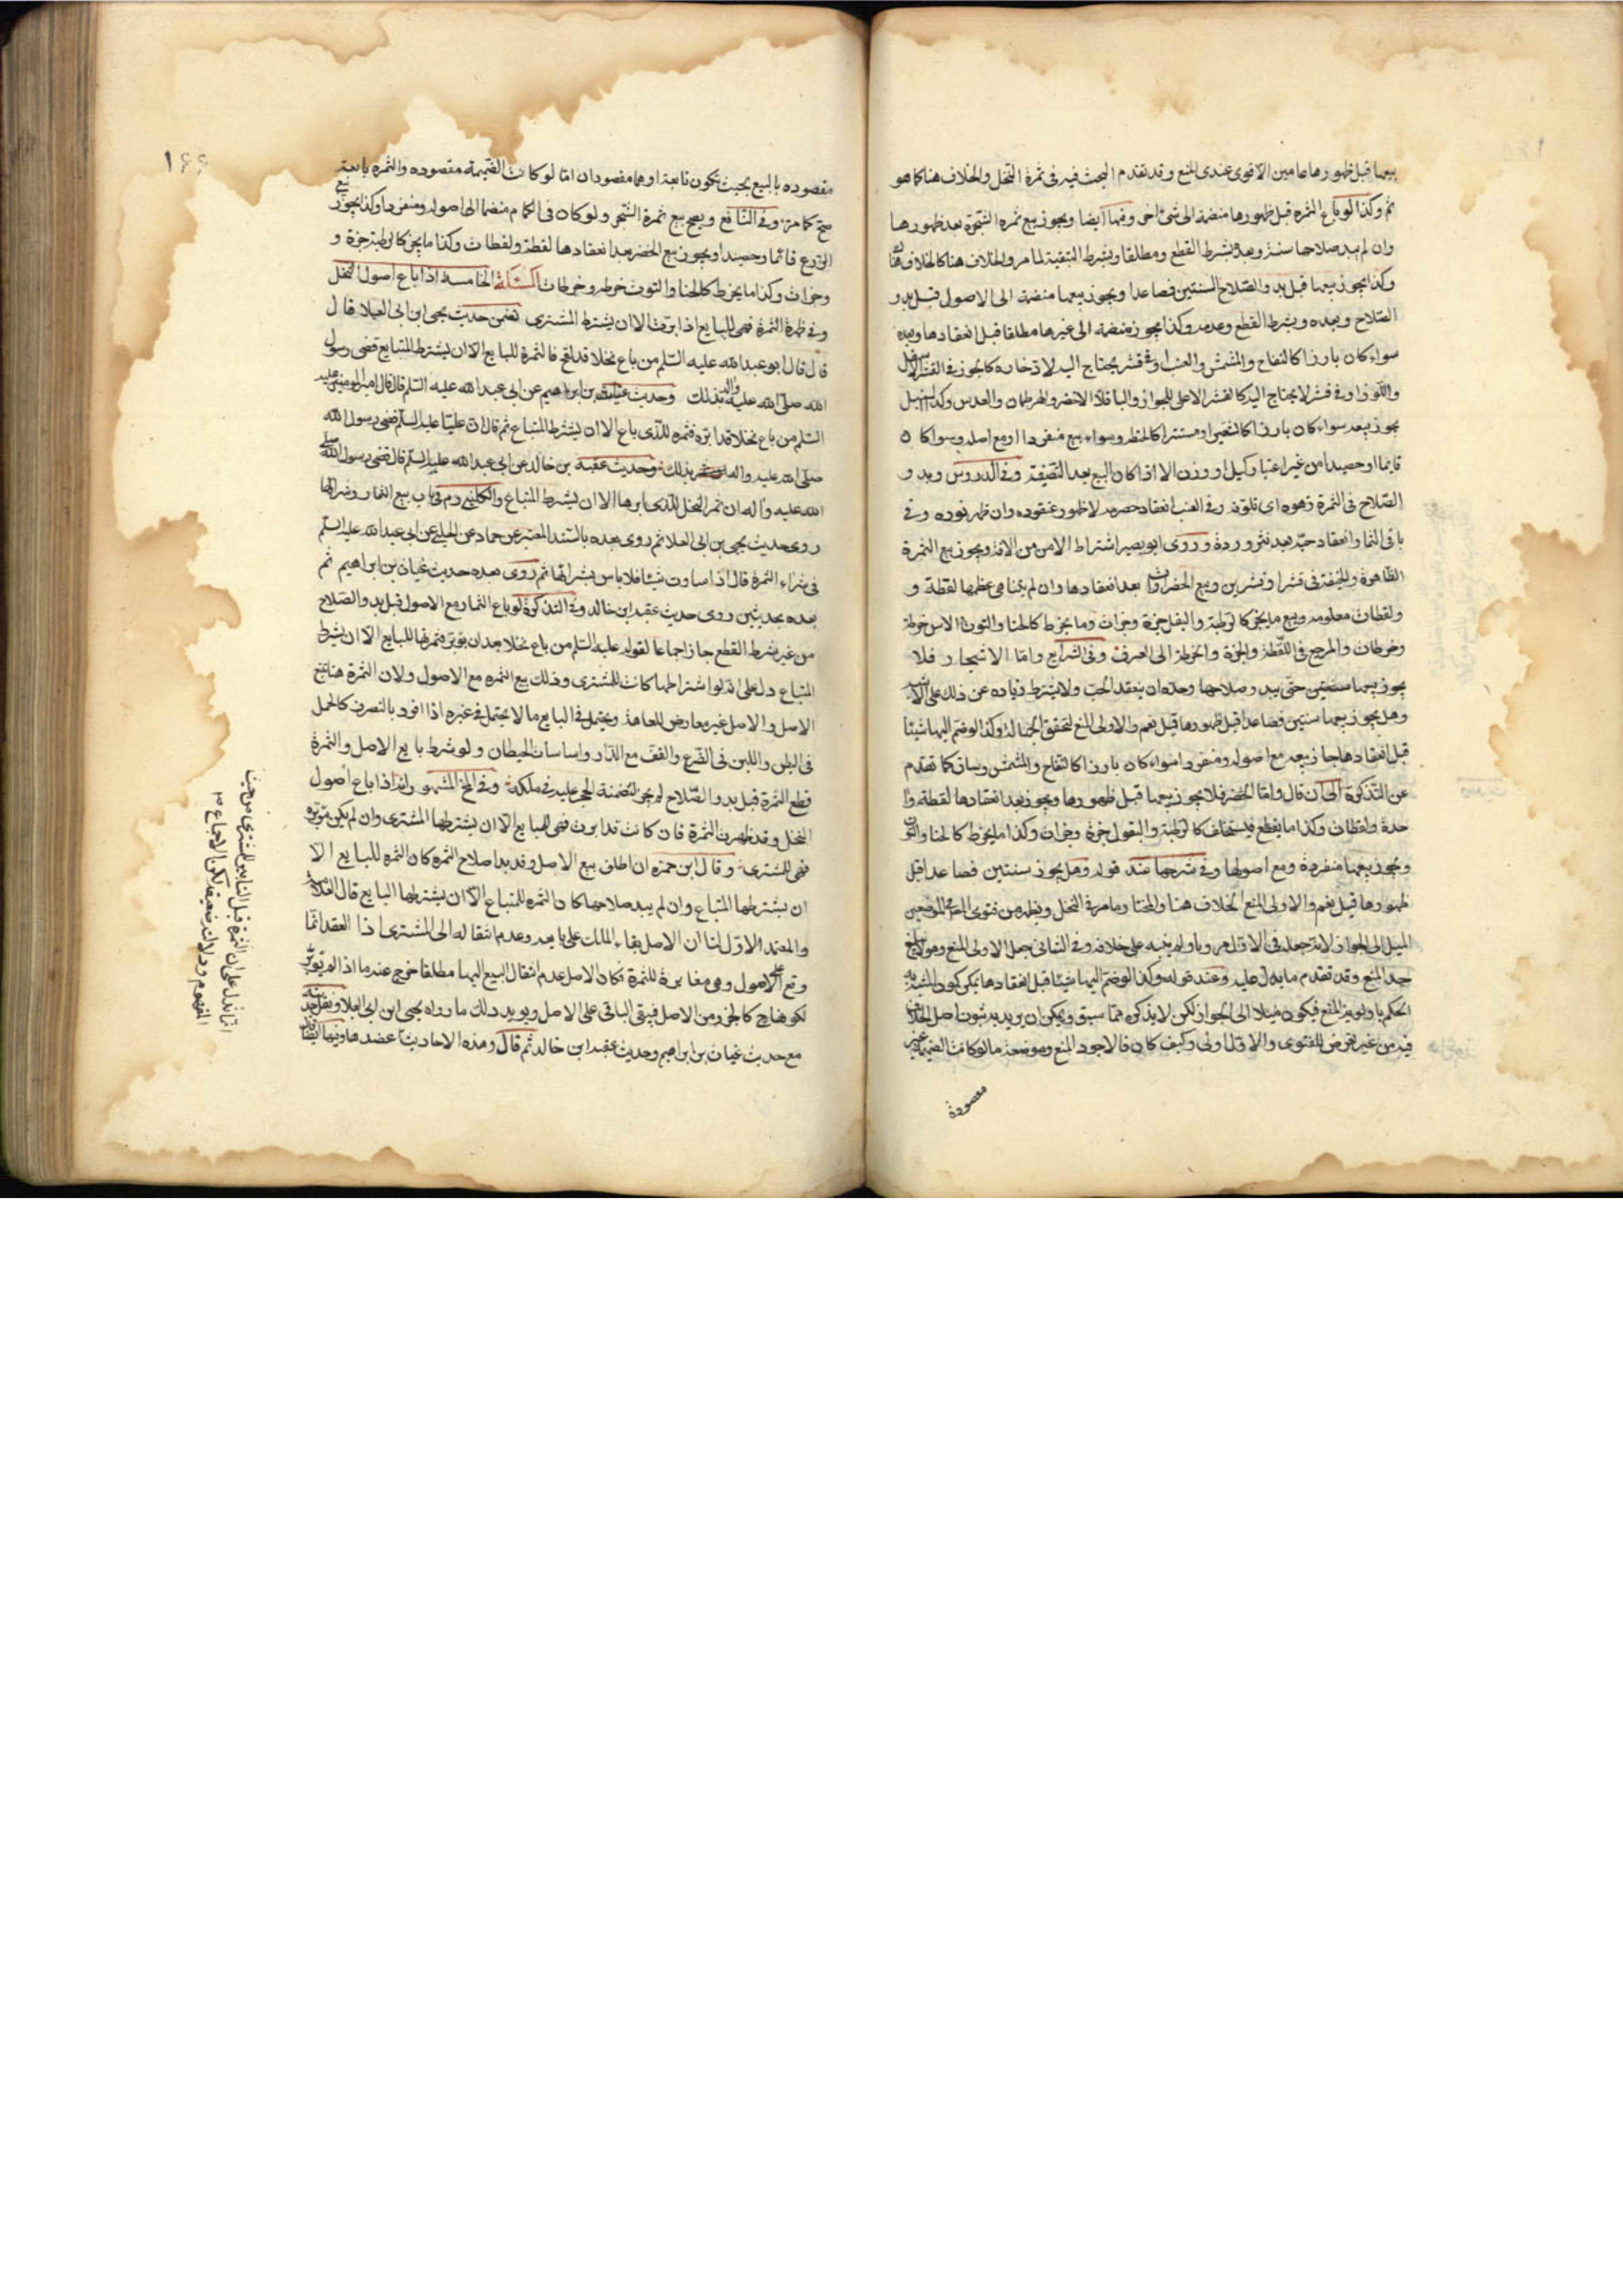 بيعها قبل ظهورها عامين الاقوى عندى المنع وقد تقدم البحث فيه فى ثمرة النخل والخلاف هنا كما هو
ثم وكذا لو باع الثمره قبل ظهورها منضمة الى شئ اخر وفيها ايضا ويجوز بيع ثمره الشجرة بعد ظهورها
وان لم يبد صلاحها سنة وبعده بشرط القطع ومطلقا وبشرط التبقية لما مر والخلاف هنا كالخلاف هناك
وكذا يجوز بيعها قبل بدو الصلاح السنتين فصاعدا ويجوز بيعها منضمة الى الاصول قبل بدو
الصلاح وبعده وبشرط القطع وعدمه وكذا يجوز منضمة الى غيرها مطلقا قبل انعقادها وبعده
سواء كان بارزا كالتفاح والمشمش والعنب او فى قشر يحتاج اليه لادخاره كالجوز فى القشر الاسفل
واللوز او فى قشر لا يحتاج اليه كالقشر الاعلى للجوز والباقلا الاخضر والهرطمان والعدس وكذا السنبل
يجوز بيعه سواء كان بارزا كالشعير او مستترا كالحنطه وسواء بيع منفردا او مع اصله وسوا كان
قايما او حصيدا من غير اعتبار كيل او وزن الا اذا كان البيع بعد التصفية وفى الدروس وبدو
الصلاح فى الثمرة زهوه اى تلونه وفى العنب انعقاد حصرمه لا ظهور عنقوده وان ظهر نوره وفى
باقى الثمار انعقاد حبه بعد تنثر وردة وروى ابو بصير اشتراط الامن من الافة ويجوز بيع الثمرة
الظاهرة والخفية فى قشر او قشرين وبيع الخضراوات بعد انعقادها وان لم يتناهى عظمها لقطة و
ولقطات معلومه وبيع ما يجز كالرطبة والبقل جزة وجزات وما يخرط كالحنا والتوت والاس خرطة
وخرطات والمرجع فى اللقطة والجزة والخرطة الى العرف وفى الشرايع واما الاشجار فلا
يجوز بيعها سنتين حتى يبدو صلاحها وحده ان ينعقد الحب ولا يشترط زياده عن ذلك على الاشبه
وهل يجوز بيعها سنتين فصاعدا قبل ظهورها قيل نعم والاولى المنع لتحقق الجهالة وكذا لو ضم اليها شيئا
قبل انعقادها جاز بيعه مع اصوله ومنفردا سواء كان بارزا كالتفاح والمشمش وساق كما تقدم
عن التذكرة الى ان قال واما الخضر فلا يجوز بيعها قبل ظهورها ويجوز بعد انعقادها لقطة وا
حدة ولقطات وكذا ما يقطع فيستخلف كالرطبة والبقول جزة وجزات وكذا ما يخرط كالحنا والتوت
ويجوز بيعها منفردة ومع اصولها وفى شرحها عند قوله وهل يجوز سنتين فصاعدا قبل
ظهورها قيل نعم والاولى المنع الخلاف هنا والمختار ما مر فى النخل ويظهر من فتوى
الميل الى الجواز لانه جعله فى الاول مرويا ولم ينبه على خلافه وفى الثانى جعل الاولى المنع وهو لا يبلغ
حد المنع وقد تقدم ما يدل عليه وعند قوله وكذا لو ضم اليها شيئا قبل انعقادها يمكن كون المشبه به
الحكم باولوية المنع فيكون ميلا الى الجواز لكن لا يذكره مما سبق ويمكن ان يريد به ثبوت اصل الخلاف
فيه من غير تعرض للفتوى والاول اولى وكيف كان فالاجود المنع وموضعه ما لو كانت الضميمة غير
مقصودة
مقصوده بالبيع بحيث تكون تابعة او هما مقصودان اما لو كانت الضميمة مقصوده والثمره تابعة
صح كما مر وفى النافع ويصح بيع ثمرة الشجر ولو كان فى اكمام منضما الى اصوله ومنفردا وكذا يجوز بيع
الزرع قائما وحصيدا ويجوز بيع الخضر بعد انعقادها لقطة ولقطات وكذا ما يجز كالرطبة جزة و
وجزات وكذا ما يخرط كالحنا والتوت خرطه وخرطات المسئلة الخامسة اذا باع اصول النخل
وفى ظهرة الثمرة فهى للبايع اذا ابرت الا ان يشترط المشترى فمن حديث يحيى ابن ابى العلا قال
قال قال ابو عبد الله عليه السلم من باع نخلا قد لقح فالثمرة للبايع الا ان يشترط المبتاع قضى رسول
الله صلى الله عليه واله بذلك وحديث غياث بن ابراهيم عن ابى عبد الله عليه السلم قال قال امير المومنين عليه
السلم من باع نخلا قد ابره فثمره للذى باع الا ان يشترط المبتاع ثم قال ان عليا عليه السلم قضى رسول الله
صلى الله عليه واله بذلك وحديث عقبة بن خالد عن ابى عبد الله عليه السلم قال قضى رسول الله صلى
الله عليه وآله ان ثمر النخل للذى ابرها الا ان يشترط المبتاع والكلينى رم فى باب بيع الثمار وشرائها
روى حديث يحيى بن ابى العلا ثم روى بعده بالسند المعتبر عن حماد عن الحلبى عن ابى عبد الله عليه السلم
فى شراء الثمرة قال اذا ساوت شيئا فلا باس بشرائها ثم روى بعده حديث غياث بن ابراهيم ثم
بعده بحديثين روى حديث عقبه ابن خالد وفى التذكرة لو باع الثمار مع الاصول قبل بدو الصلاح
من غير شرط القطع جاز اجماعا لقوله عليه السلم من باع نخلا بعد ان يؤبر فثمرتها للبايع الا ان يشترط
المبتاع دل على انه لو اشتراطها كانت للمشترى وذلك بيع الثمره مع الاصول ولان الثمرة هنا تتبع
الاصل والاصل غير معارض للعاهة ويحتمل فى البايع ما لا يحتمل فى غيره اذا افرد بالتصرف كالحمل
فى البطن واللبن فى الضرع والقف مع الدار واساسات الحيطان ولو شرط بايع الاصل والثمرة
قطع الثمرة قبل بدو الصلاح لم يجز لتضمنه الحجر عليه فى ملكه وفى المخ المشهور انه اذا باع اصول
النخل وقد ظهرت الثمرة فان كانت قد ابرت فهى للبايع الا ان يشترطها المشترى وان لم يكن مؤبره
فهى للمشترى وقال ابن حمزه ان اطلق بيع الاصل وقد بدا صلاح الثمره كان الثمره للبايع الا
ان يشترطها المبتاع وان لم يبد صلاحها كان الثمره للمبتاع الا ان يشترطها البايع قال العلامه
والمعتمد الاول لنا ان الاصل بقاء الملك على بايعه وعدم انتقاله الى المشترى اذا العقد انما
وقع على الاصول وهى مغايرة للثمرة فكان الاصل عدم انتقال البيع اليها مطلقا خرج عنه ما اذا لم تؤبر
لكونها كالجزء من الاصل فيبقى الباقى على الاصل ويويد ذلك ما رواه يحيى ابن ابى العلا ونقل حديثه
مع حديث غياث بن ابراهيم وحديث عقبه ابن خالد ثم قال وهذه الاحاديث عضدها